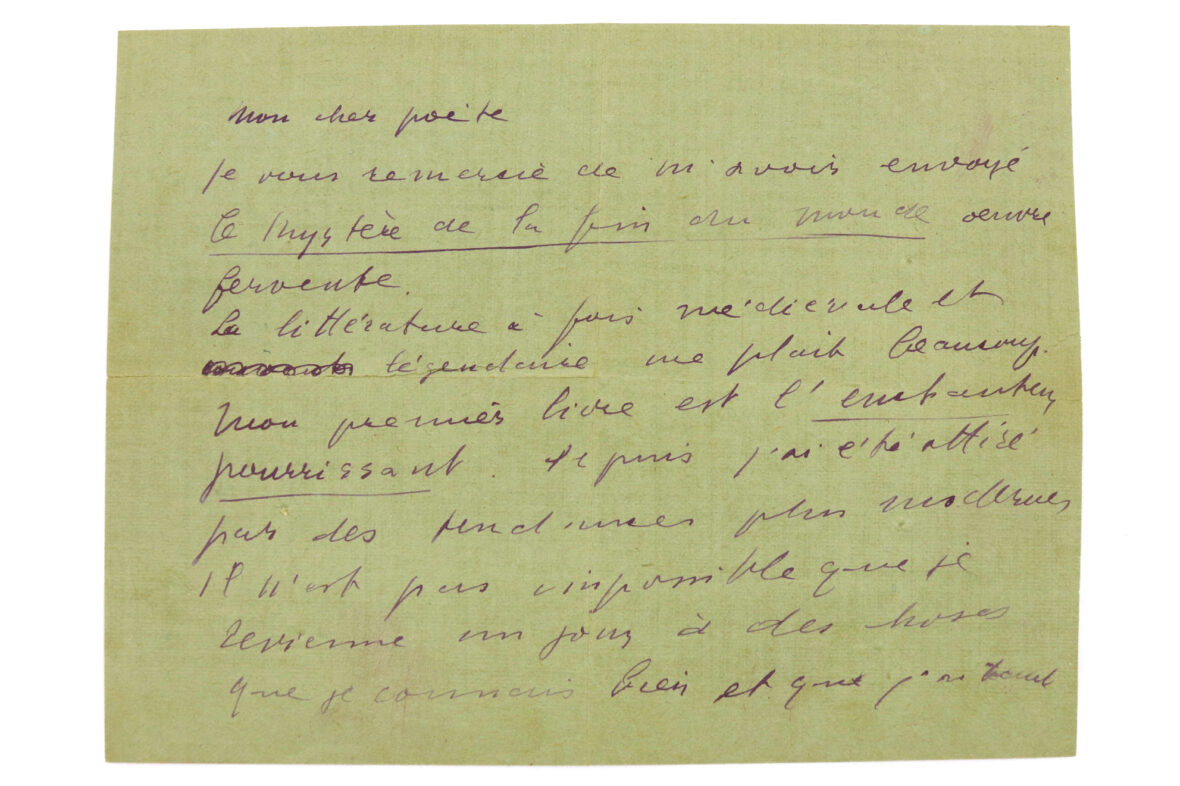 Mon cher poète
Je vous remercie de m'avoir envoyé
Le Mystère de la fin du monde oeuvre
fervente.
La littérature à fois médiévale et
légendaire me plait beaucoup.
Mon premier livre est l'enchanteur
pourrissant. Depuis j'ai été attiré
par des tendances plus modernes
Il n'est pas impossible que je
revienne un jour à des choses
que je connais bien et que j'ai tant